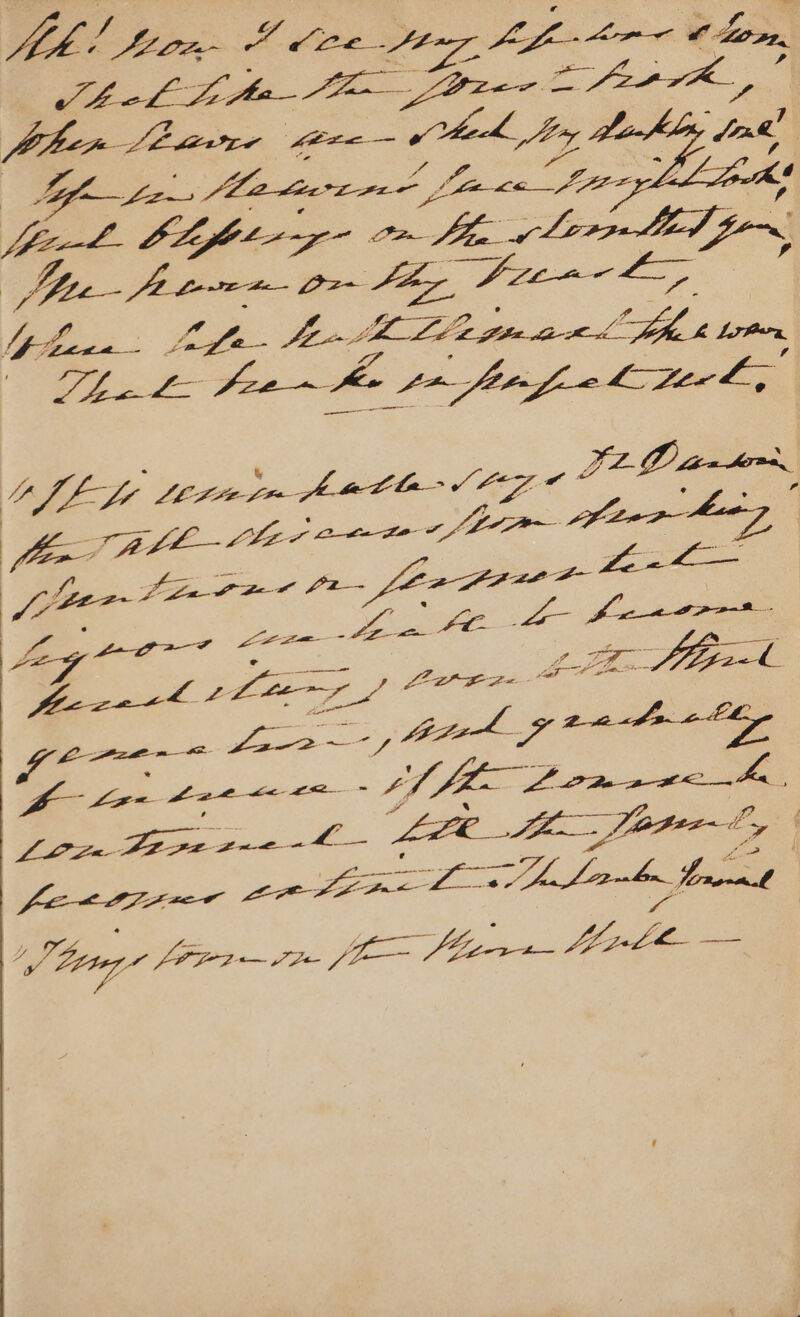 Ah! now I see my life was shorn,
That like the forest brook,
When leaves are shed, my darkling soul
Up in Heaven's face might look,
And blessings on the storm that gave
Me haven on thy breast,
Where life hath climaxed like a wave
That breaks in perfect rest.
"It is remarkable says Dr Darwin,
that all diseases from drinking
spirituous or fermented
liquors are liable to become
hereditary, even to the third
generation, and gradually
to increase - if the course be
continued till the family
becomes extinct. The London Journal
"Kings town on the River Hull —